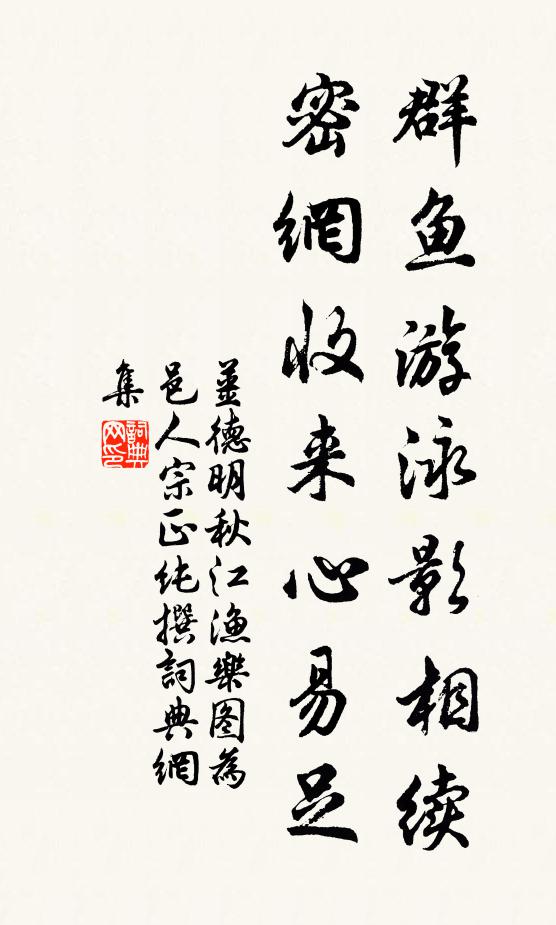 群鱼游泳影相续
密網收来心易足
姜德明秋江渔樂图為
邑人宗正纯撰詞典網
集
詞典网印